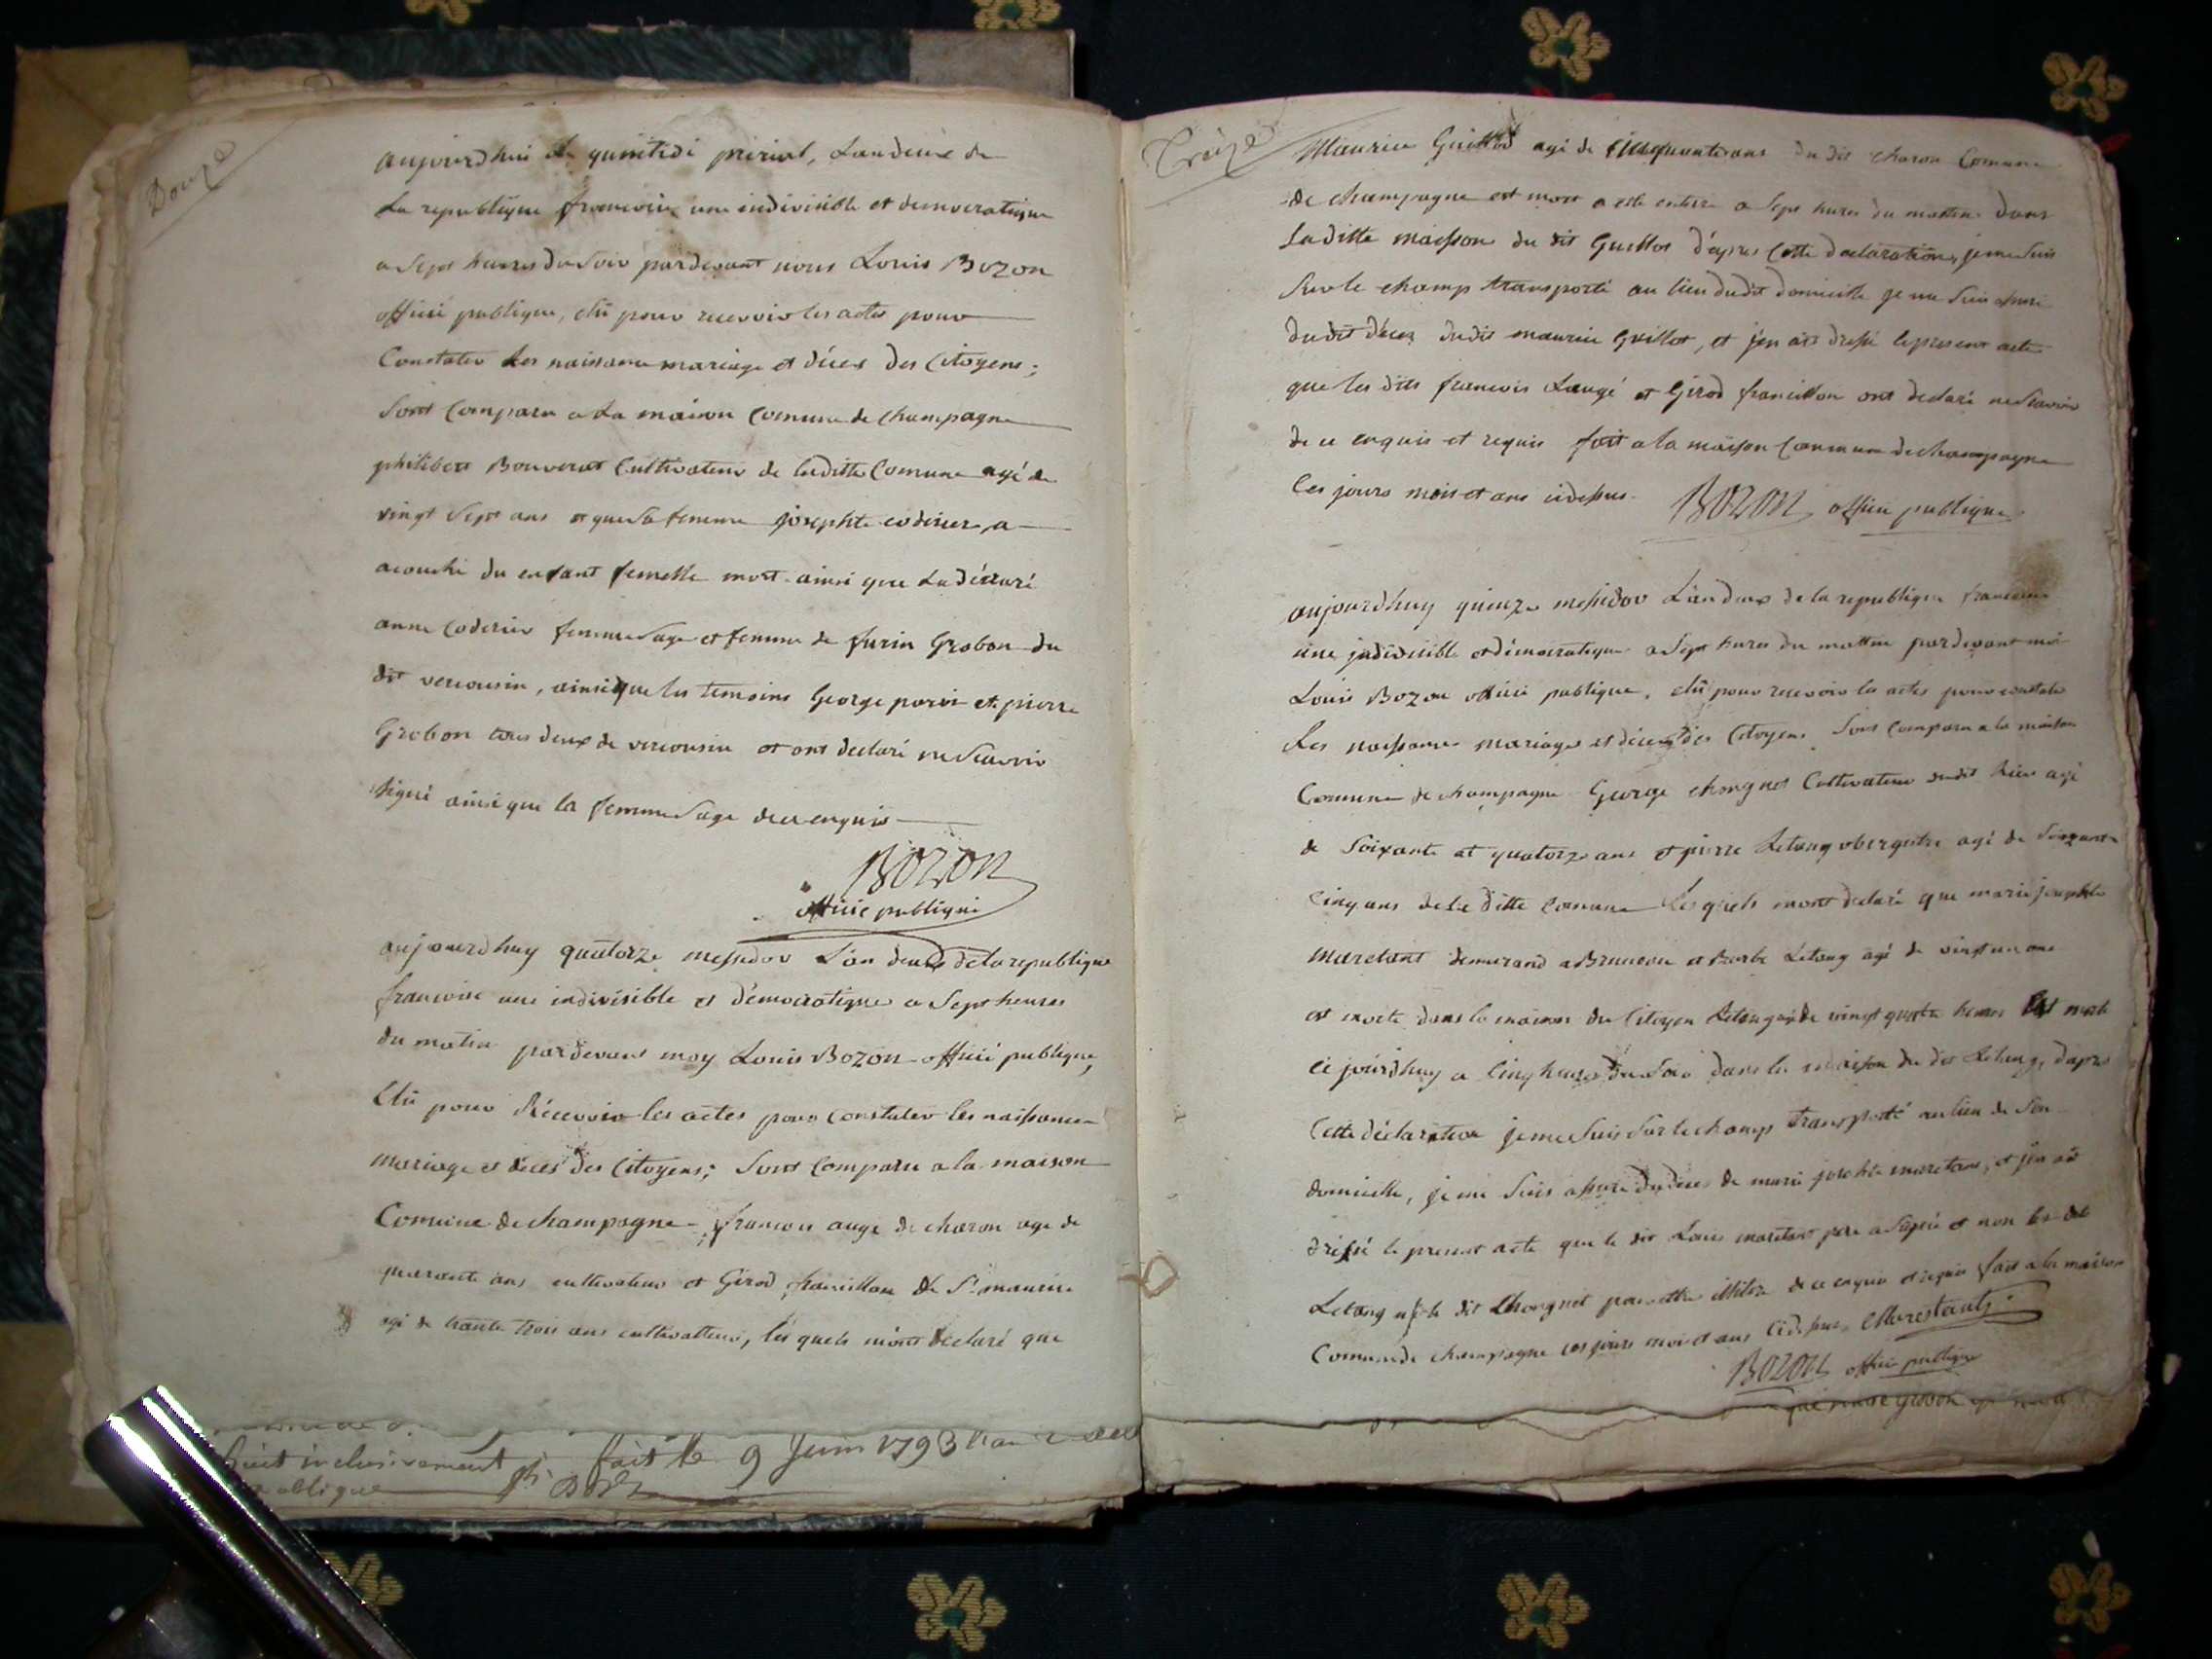 Douze
aujourdhui le quintidi prerial, Landeuxe de
La republique francoise une indivisible et democratique
a Sept heures du Soir pardevant nous Louis Bozon
officié publique, elû pour recevoir les actes pour
Constater les naissance mariage et déces des Citoyens;
Sont Comparu a La maison Comune de Champagne
philibert Bouverat Cultivateur de laditte Comune agé de
vingt Sept ans et que Sa femme josephte coderier a
acouché du enfant femelle mort ainsi que La déclaré
anne Coderier femme Sage et femme de furin Grobon du
dit vercousin, ainsi que les temoins George parin et pierre
Grobon tous deux de vercousin et ont declaré ne Scavoir
signé ainsi que la femme Sage de ce enquis
BOZON
officié publique
aujourdhuy quatorze messidor L'an deuxe de la republique
francoise une indivisible et démocratique a Sept heures
du matin pardevant moy Louis Bozon officié publique,
Elû pour Récevoir les actes pour constater les naissances
mariage et déces des Citoyens; Sont Comparu a la maison
Comune de champagne francois auge de charon age de
quarante ans cultivateur et Girod francillon de St maurice
agé de trante trois ans cultivatteur, les quels m'ont declaré que
huit inclusivement fait le 9 Juin 1793 l'an 2
publique
Treize
Maurice Guillot agé de cinquante ans du dit charon Comune
de champagne est mort a esté enterré a Sept hures du mattin dans
Laditte maison du dit Guillot d'apres Cette declaration, je me Suis
Sur le champ transporté au lieu dudit domicille je me Suis assuré
dudit déces dudit maurice Guillot, et j'en ais dressé le present acte
que les dits francois Laugé et Girod francillon ont declaré ne Scavoir
de ce enquis et requis fait a la maison Comune de champagne
les jours mois et ans cidessus. BOZON officié publique
aujourdhuy quinze messidor L'an deux de la republique francoise
une jndivisible et démocratique a Sept hures du mattin pardevant moi
Louis Bozon officié publique, elû pour recevoir les actes pour constater
Les naissances mariages et déces des Citoyens Sont Comparu a la maison
Comune de champagne George chongnet Cultivateur dudit lieu agé
de Soixante et quatorze ans et pierre Letang obergiste agé de Soixante
Cinq ans de la ditte Comune les quels mont declaré que marie josephte
maretant demeurand a et Barbe Letang agé de vingt un ans
est morte dans la maison du Citoyen Letang agé de vingt quatre heures Est morte
ce jourdhuy a Cinq heures du Soir dans la maison du dit Letang, d'apres
Cette déclaration je me Suis Sur le champ transporté au lieu de Son
domicille, je me Suis assuré du déces de marie josephte maretant, et j'en ais
dréssé le present acte que le dit Louis maretant pere a Signé et non les dit
Letang ny le dit Chongnet pour etre illitéré de ce enquis et requis fait a la maison
Comune de champagne les jours mois et ans Cidessus Marestant
BOZON officié publique